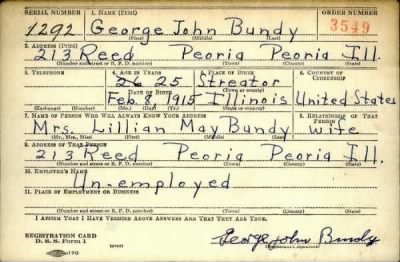 SERIAL NUMBER 1. NAME (Print) ORDER NUMBER
1292 George John Bundy 3549
(First) (Middle) (Last)
2. ADDRESS (Print)
213 Reed Peoria Peoria Ill.
(Number and street or R. F. D. number) (Town) (County) (State)
3. TELEPHONE 4. AGE IN YEARS 5. PLACE OF BIRTH 6. COUNTRY OF CITIZENSHIP
26 25 Streator
DATE OF BIRTH (Town or county)
Feb. 8, 1915 Illinois United States
(Exchange) (Number) (Mo.) (Day) (Yr.) (State or country)
7. NAME OF PERSON WHO WILL ALWAYS KNOW YOUR ADDRESS 8. RELATIONSHIP OF THAT PERSON
Mrs. Lillian May Bundy wife
(Mr., Mrs., Miss) (First) (Middle) (Last)
9. ADDRESS OF THAT PERSON
213 Reed Peoria Peoria Ill.
(Number and street or R. F. D. number) (Town) (County) (State)
10. EMPLOYER'S NAME
Un-employed
11. PLACE OF EMPLOYMENT OR BUSINESS
(Number and street or R. F. D. number) (Town) (County) (State)
I AFFIRM THAT I HAVE VERIFIED ABOVE ANSWERS AND THAT THEY ARE TRUE.
REGISTRATION CARD
D. S. S. Form 1 (over) George John Bundy
(Registrant's signature)